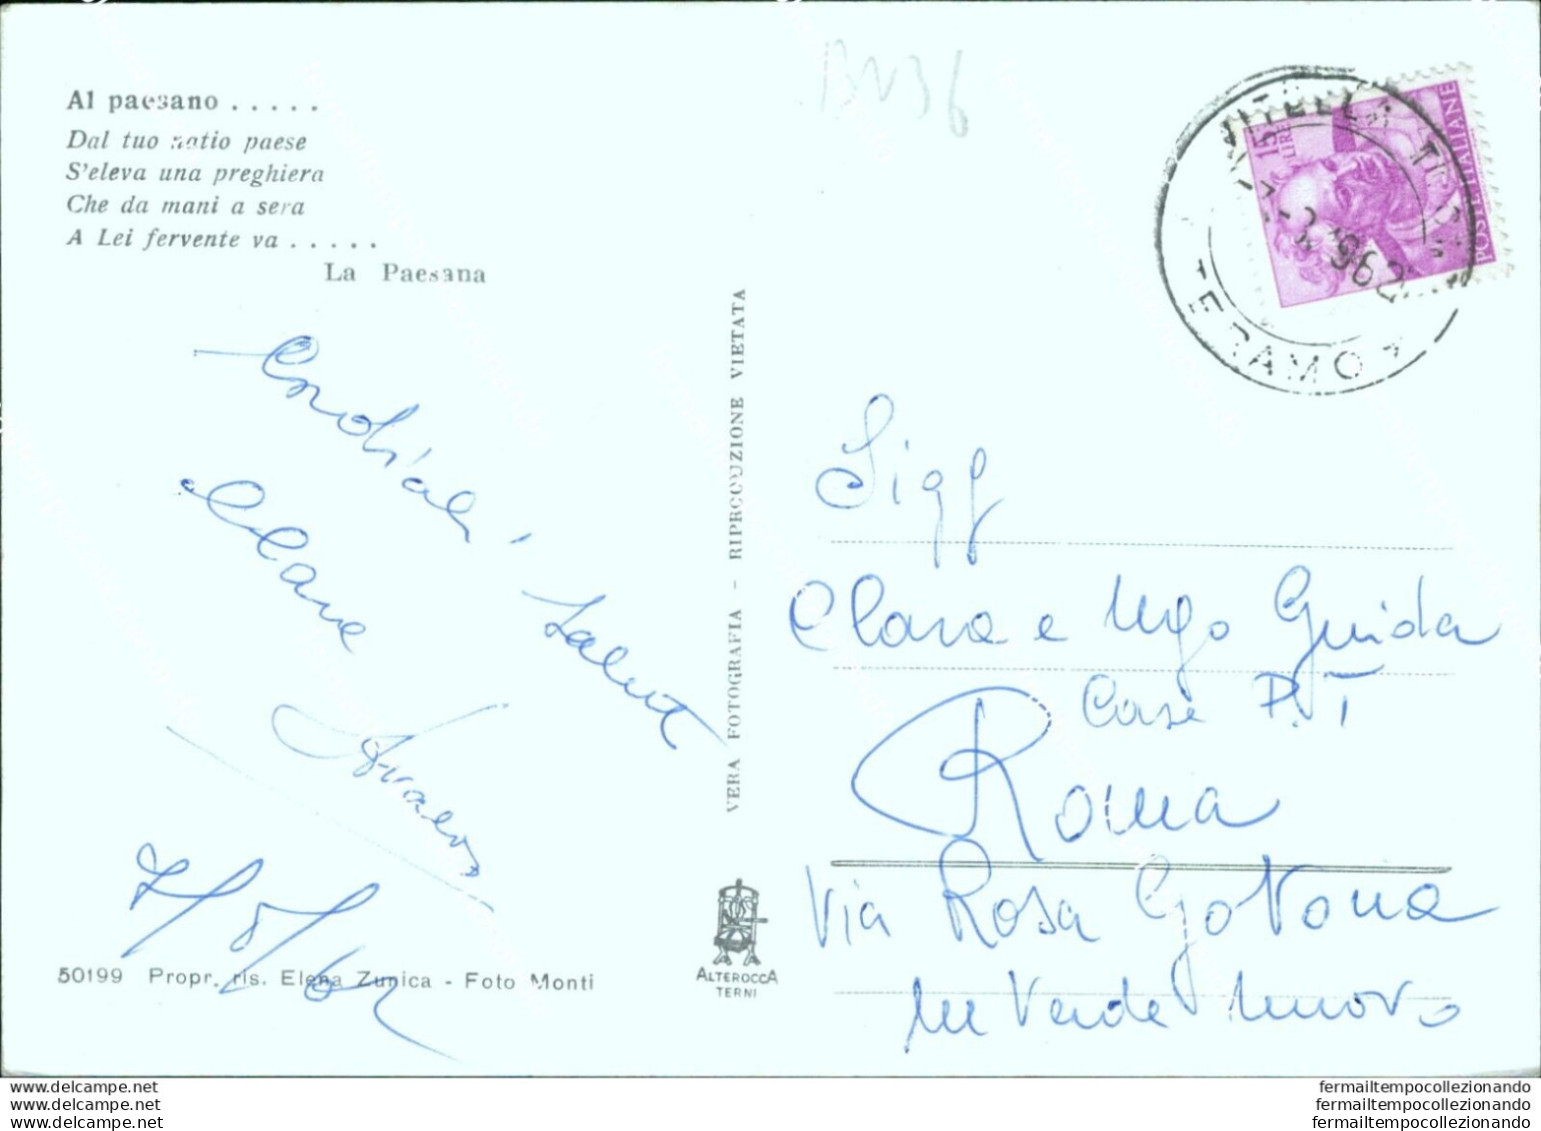 BV36
Al paesano . . . . .
Dal tuo natio paese
S'eleva una preghiera
Che da mani a sera
A Lei fervente va . . . . .
La Paesana
Cordiali saluti
50199 Propr. ris. Elena Zunica - Foto Monti
VERA FOTOGRAFIA - RIPRODUZIONE VIETATA
ALTEROCCA
TERNI
15 LIRE
POSTE ITALIANE
TERAMO
Sigg
Clara e Ugo Guida
Case P.T
Roma
Via Rosa
www.delcampe.net
www.delcampe.net
www.delcampe.net
fermailtempocollezionando
fermailtempocollezionando
fermailtempocollezionando